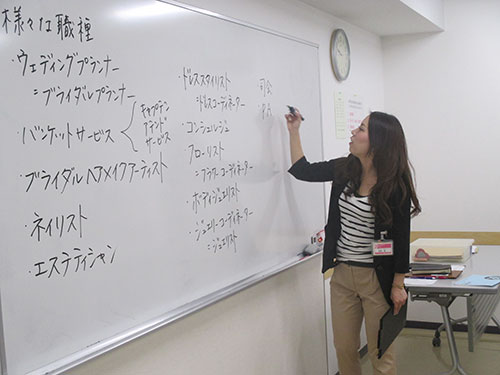 様々な職種
・ウェディングプランナー
=ブライダルプランナー
・バンケットサービス
キャプテン
アテンド
サービス
・ブライダルヘアメイクアーティスト
・ネイリスト
・エステティシャン
・ドレススタイリスト
=ドレスコーディネーター
・コンシェルジュ
・フローリスト
=フラワーコーディネーター
・ボディジュエリスト
・ジュエリーコーディネーター
=ジュエリスト
司会